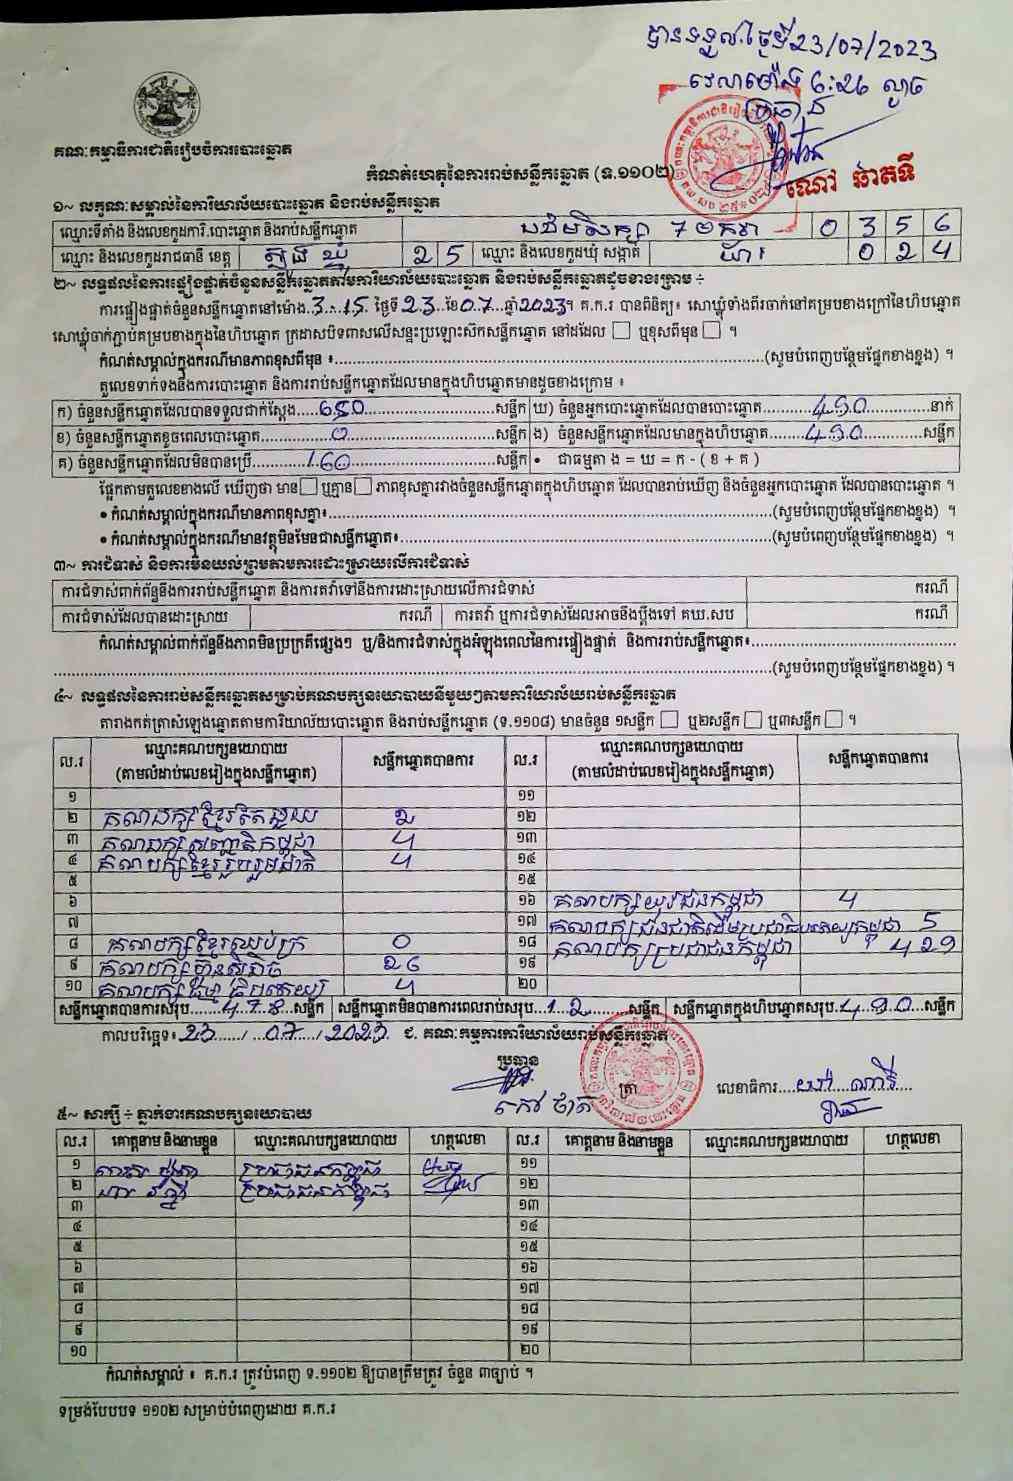 បានទទួលថ្ងៃទី23/07/2023
វេលាម៉ោង 6:26 ល្ងាច
ប្រធាន
ណៅ ឆាតទី
គណៈកម្មាធិការជាតិរៀបចំការបោះឆ្នោត
កំណត់ហេតុនៃការរាប់សន្លឹកឆ្នោត (ទ.១១០២)
១~ លក្ខណៈសម្គាល់នៃការិយាល័យបោះឆ្នោត និងរាប់សន្លឹកឆ្នោត
ឈ្មោះទីតាំង និងលេខកូដការិ.បោះឆ្នោត និងរាប់សន្លឹកឆ្នោត បឋមសិក្សា 7 មករា 0 3 5 6
ឈ្មោះ និងលេខកូដរាជធានី ខេត្ត ត្បូងឃ្មុំ 2 5 ឈ្មោះ និងលេខកូដឃុំ សង្កាត់ 0 2 4
២~ លទ្ធផលនៃការផ្ទៀងផ្ទាត់ចំនួនសន្លឹកឆ្នោតតាមការិយាល័យបោះឆ្នោត និងរាប់សន្លឹកឆ្នោតដូចខាងក្រោម ÷
ការផ្ទៀងផ្ទាត់ចំនួនសន្លឹកឆ្នោតនៅម៉ោង 3:15 ថ្ងៃទី 23 ខែ 07 ឆ្នាំ 2023។ គ.ក.រ បានពិនិត្យ៖ សោឃ្លុំទាំងពីរចាក់នៅគម្របខាងក្រៅនៃហិបឆ្នោត
សោឃ្លុំចាក់ភ្ជាប់គម្របខាងក្នុងនៃហិបឆ្នោត ក្រដាសបិទពាសលើសន្ទះប្រឡោះសឹកសន្លឹកឆ្នោត នៅដដែល □ ឬខុសពីមុន □ ។
កំណត់សម្គាល់ក្នុងករណីមានភាពខុសពីមុន ៖ (សូមបំពេញបន្ថែមផ្នែកខាងខ្នង) ។
តួលេខទាក់ទងនឹងការបោះឆ្នោត និងការរាប់សន្លឹកឆ្នោតដែលមានក្នុងហិបឆ្នោតមានដូចខាងក្រោម ៖
ក) ចំនួនសន្លឹកឆ្នោតដែលបានទទួលជាក់ស្តែង 650 សន្លឹក ឃ) ចំនួនអ្នកបោះឆ្នោតដែលបានបោះឆ្នោត 490 នាក់
ខ) ចំនួនសន្លឹកឆ្នោតខូចពេលបោះឆ្នោត 0 សន្លឹក ង) ចំនួនសន្លឹកឆ្នោតដែលមានក្នុងហិបឆ្នោត 490 សន្លឹក
គ) ចំនួនសន្លឹកឆ្នោតដែលមិនបានប្រើ 160 សន្លឹក • ជាធម្មតា ង = ឃ = ក - ( ខ + គ )
ផ្អែកតាមតួលេខខាងលើ ឃើញថា មាន □ ឬគ្មាន □ ភាពខុសគ្នារវាងចំនួនសន្លឹកឆ្នោតក្នុងហិបឆ្នោត ដែលបានរាប់ឃើញ និងចំនួនអ្នកបោះឆ្នោត ដែលបានបោះឆ្នោត ។
• កំណត់សម្គាល់ក្នុងករណីមានភាពខុសគ្នា៖ (សូមបំពេញបន្ថែមផ្នែកខាងខ្នង) ។
• កំណត់សម្គាល់ក្នុងករណីមានវត្ថុមិនមែនជាសន្លឹកឆ្នោត៖ (សូមបំពេញបន្ថែមផ្នែកខាងខ្នង) ។
៣~ ការជំទាស់ និងការមិនយល់ព្រមតាមការដោះស្រាយលើការជំទាស់
ការជំទាស់ពាក់ព័ន្ធនឹងការរាប់សន្លឹកឆ្នោត និងការតវ៉ាទៅនឹងការដោះស្រាយលើការជំទាស់ ករណី
ការជំទាស់ដែលបានដោះស្រាយ ករណី ការតវ៉ា ឬការជំទាស់ដែលអាចនឹងប្តឹងទៅ គឃ.សប ករណី
កំណត់សម្គាល់ពាក់ព័ន្ធនឹងភាពមិនប្រក្រតីផ្សេងៗ ឬ/និងការជំទាស់ក្នុងអំឡុងពេលនៃការផ្ទៀងផ្ទាត់ និងការរាប់សន្លឹកឆ្នោត៖
(សូមបំពេញបន្ថែមផ្នែកខាងខ្នង) ។
៤~ លទ្ធផលនៃការរាប់សន្លឹកឆ្នោតសម្រាប់គណបក្សនយោបាយនីមួយៗតាមការិយាល័យរាប់សន្លឹកឆ្នោត
តារាងកត់ត្រាសំឡេងឆ្នោតតាមការិយាល័យបោះឆ្នោត និងរាប់សន្លឹកឆ្នោត (ទ.១១០៨) មានចំនួន ១សន្លឹក □ ឬ២សន្លឹក □ ឬ៣សន្លឹក □ ។
ល.រ ឈ្មោះគណបក្សនយោបាយ (តាមលំដាប់លេខរៀងក្នុងសន្លឹកឆ្នោត) សន្លឹកឆ្នោតបានការ ល.រ ឈ្មោះគណបក្សនយោបាយ (តាមលំដាប់លេខរៀងក្នុងសន្លឹកឆ្នោត) សន្លឹកឆ្នោតបានការ
១ ១១
២ គណបក្សខ្មែរតែមួយ 2 ១២
៣ គណបក្សសញ្ជាតិកម្ពុជា 4 ១៣
៤ គណបក្សខ្មែររួបរួមជាតិ 4 ១៤
៥ ១៥
៦ ១៦ គណបក្សយុវជនកម្ពុជា 4
៧ ១៧ គណបក្សជនជាតិដើមប្រជាធិបតេយ្យកម្ពុជា 5
៨ គណបក្សខ្មែរឈប់ក្រ 0 ១៨ គណបក្សប្រជាជនកម្ពុជា 429
៩ គណបក្សហ្វ៊ុនស៊ិនប៉ិច 26 ១៩
១០ គណបក្សធម្មាធិបតេយ្យ 4 ២០
សន្លឹកឆ្នោតបានការសរុប 478 សន្លឹក សន្លឹកឆ្នោតមិនបានការពេលរាប់សរុប 12 សន្លឹក សន្លឹកឆ្នោតក្នុងហិបឆ្នោតសរុប 490 សន្លឹក
កាលបរិច្ឆេទ៖ 23 / 07 / 2023 ជ. គណៈកម្មការការិយាល័យរាប់សន្លឹកឆ្នោត
ប្រធាន
ត្រា លេខាធិការ
៥~ សាក្សី ÷ ភ្នាក់ងារគណបក្សនយោបាយ
ល.រ គោត្តនាម និងនាមខ្លួន ឈ្មោះគណបក្សនយោបាយ ហត្ថលេខា ល.រ គោត្តនាម និងនាមខ្លួន ឈ្មោះគណបក្សនយោបាយ ហត្ថលេខា
១ ប្រជាជនកម្ពុជា ១១
២ ប្រជាជនកម្ពុជា ១២
៣ ១៣
៤ ១៤
៥ ១៥
៦ ១៦
៧ ១៧
៨ ១៨
៩ ១៩
១០ ២០
កំណត់សម្គាល់ ៖ គ.ក.រ ត្រូវបំពេញ ទ.១១០២ ឱ្យបានត្រឹមត្រូវ ចំនួន ៣ច្បាប់ ។
ទម្រង់បែបបទ ១១០២ សម្រាប់បំពេញដោយ គ.ក.រ